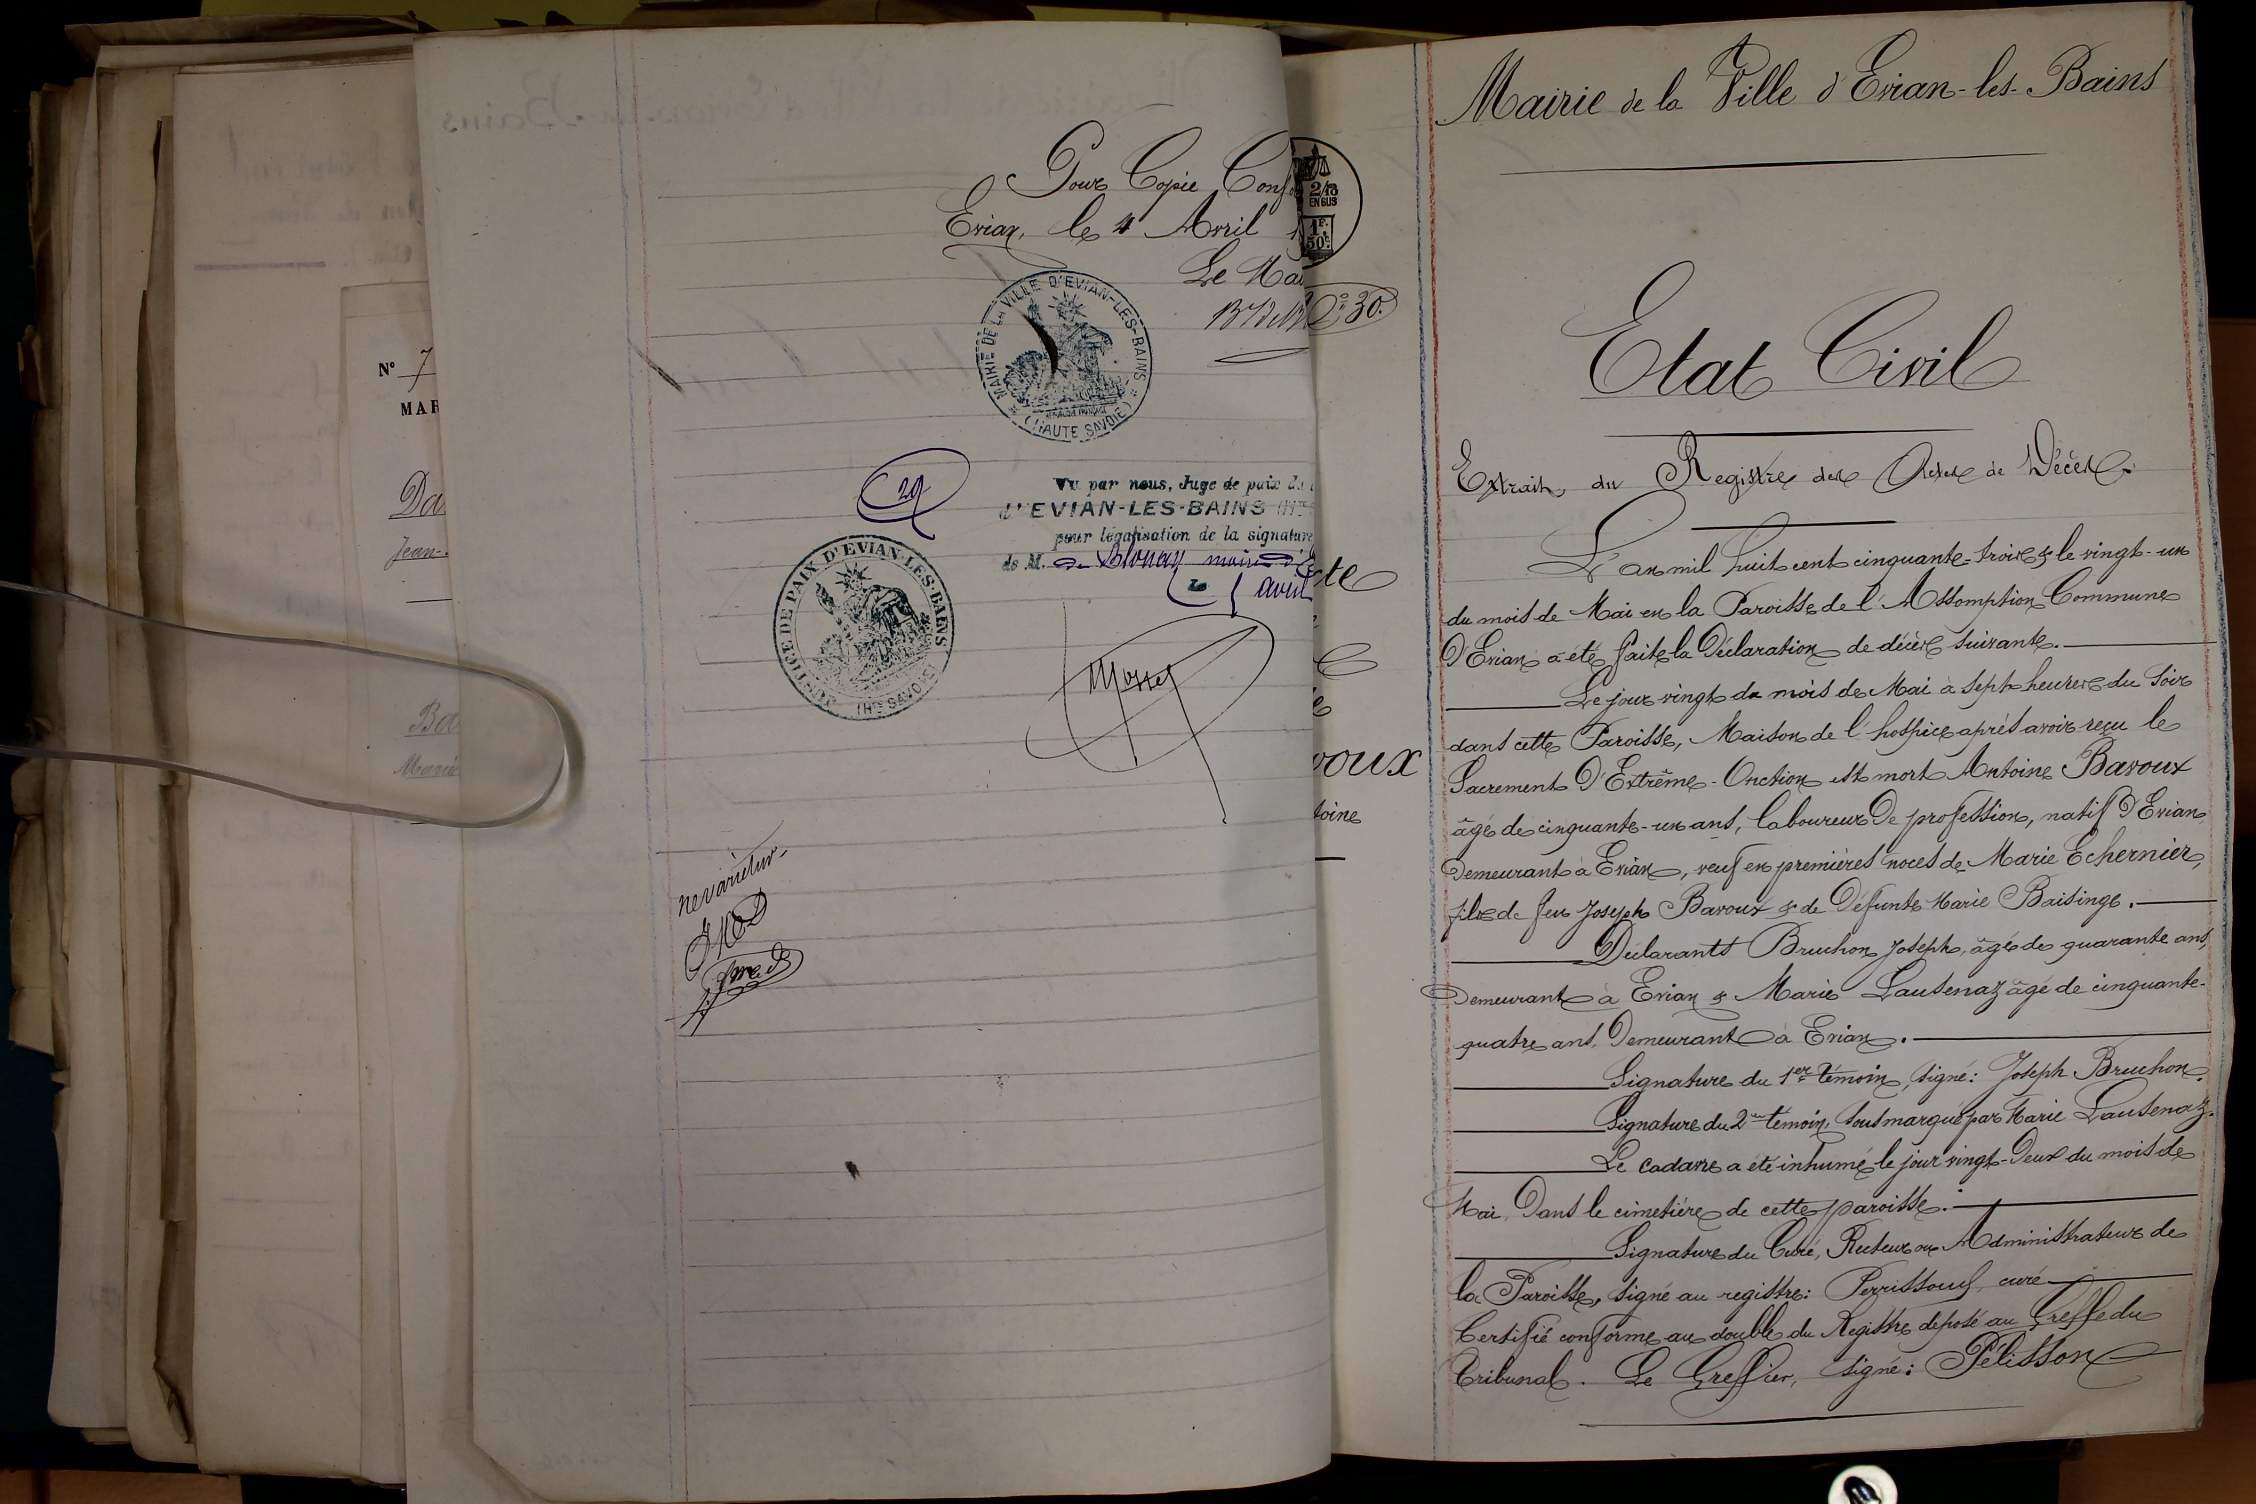 N° 7
MAR
Da
Jean-
Ba
Marie
Pour Copie Conf
Evian, le 4 Avril 1
Le Mai
MAIRIE DE LA VILLE D'EVIAN-LES-BAINS
(HAUTE SAVOIE)
29
Vu par nous, Juge de paix du
d'EVIAN-LES-BAINS (Hte
pour légalisation de la signature
de M. de Blonay maire d'E
Le 5 avril
JUSTICE DE PAIX D'EVIAN-LES-BAINS
(Hte SAVOIE)
ne varietur
2/13
EN SUS
1F.
50c
2c 30.
cte
voux
toine
Mairie de la Ville d'Evian-les-Bains
Etat Civil
Extrait du Registre des Actes de Décès.
L'an mil huit cent cinquante-trois & le vingt-un
du mois de Mai en la Paroisse de l'Assomption Commune
D'Evian a été faite la Déclaration de décès suivante.
Le jour vingt du mois de Mai à sept heures du Soir
dans cette Paroisse, Maison de l'hospice après avoir reçu le
Sacrement D'Extrême-Onction est mort Antoine Bavoux
âgé de cinquante-un ans, laboureur De profession, natif D'Evian,
Demeurant à Evian, veuf en premières noces de Marie Echernier,
fils de feu Joseph Bavoux & de Défunte Marie Baisinge.
Déclarants Bruchon Joseph, âgé de quarante ans,
Demeurant à Evian & Marie Lausenaz âgé de cinquante-
quatre ans, Demeurant à Evian.
Signature du 1er témoin, signé: Joseph Bruchon.
Signature du 2me témoin, sousmarqué par Marie Lausenaz.
Le cadavre a été inhumé le jour vingt-Deux du mois de
Mai, Dans le cimetière de cette paroisse.
Signature du Curé, Recteur ou Administrateur de
la Paroisse, signé au registre: Perrissoud, curé
Certifié conforme au double du Registre déposé au Greffe du
Tribunal. Le Greffier, signé: Pélisson